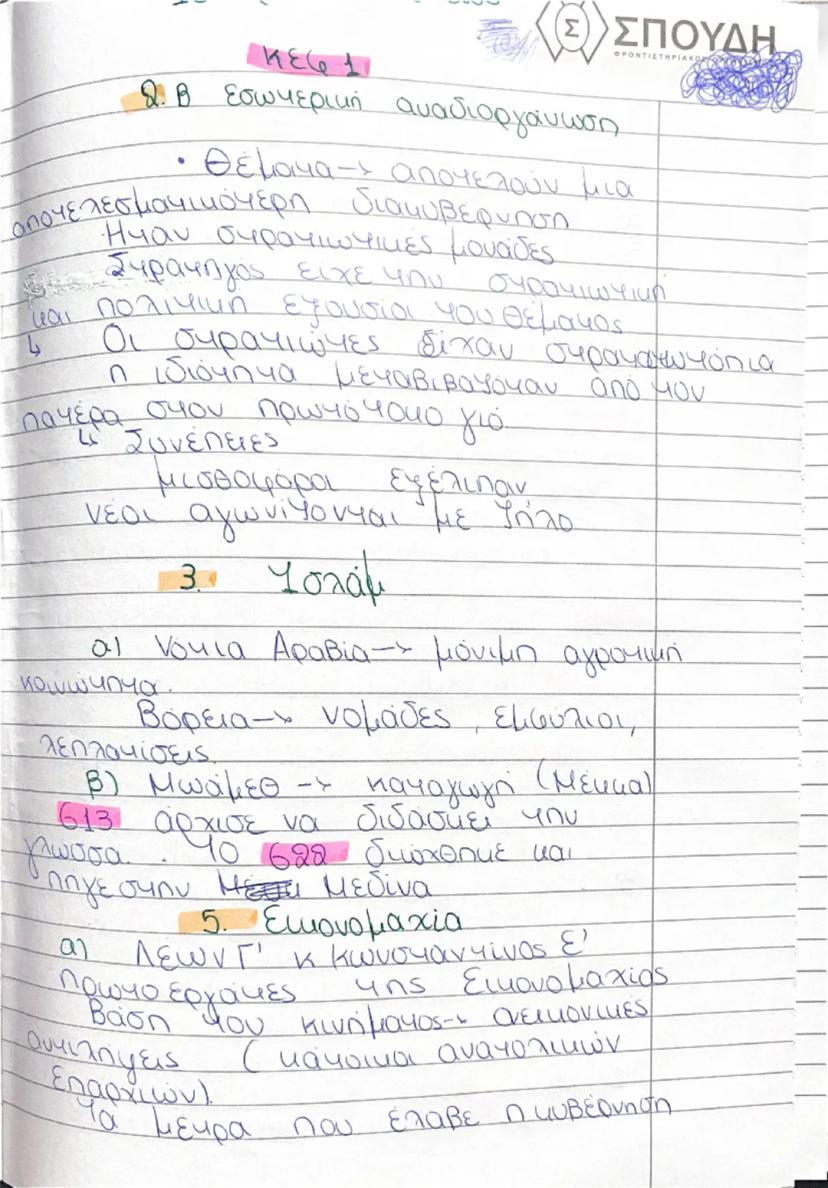 ΣΠΟΥΔΗ
ΚΕΦ 1
2. Β εσωτερική αναδιοργάνωση
• Θέματα → αποτελούν μια
αποτελεσματικότερη διακυβέρνηση
Ήταν στρατιωτικές μονάδες
Στρατηγός είχε την στρατιωτική
και πολιτική εξουσία του θέματος
↳ Οι στρατιώτες είχαν στρατιωτόπια
η ιδιότητα μεταβιβαζόταν από τον
πατέρα στον πρωτότοκο γιό
↳ Συνέπειες
μισθοφόροι εξέλιπαν
νέοι αγωνίζονται με ζήλο
3. Ισλάμ
α) νότια Αραβία → μόνιμη αγροτική
κοινώτητα.
Βόρεια → νομάδες, εμφύλιοι,
λεπλατίσεις.
β) Μωάμεθ → καταγωγή (Μέκκα)
613 άρχισε να διδάσκει την
γλώσσα. Το 622 διώχθηκε και
πήγε στην Μεδίνα
5. Εικονομαχία
α) Λέων Γ' κ Κωνσταντίνος Ε'
πρωτοεργάτες της Εικονομαχίας
Βάση του κινήματος → ανεικονικές
αντιλήψεις (κάτοικοι ανατολικών
επαρχιών).
Τα μέτρα που έλαβε η κυβέρνηση